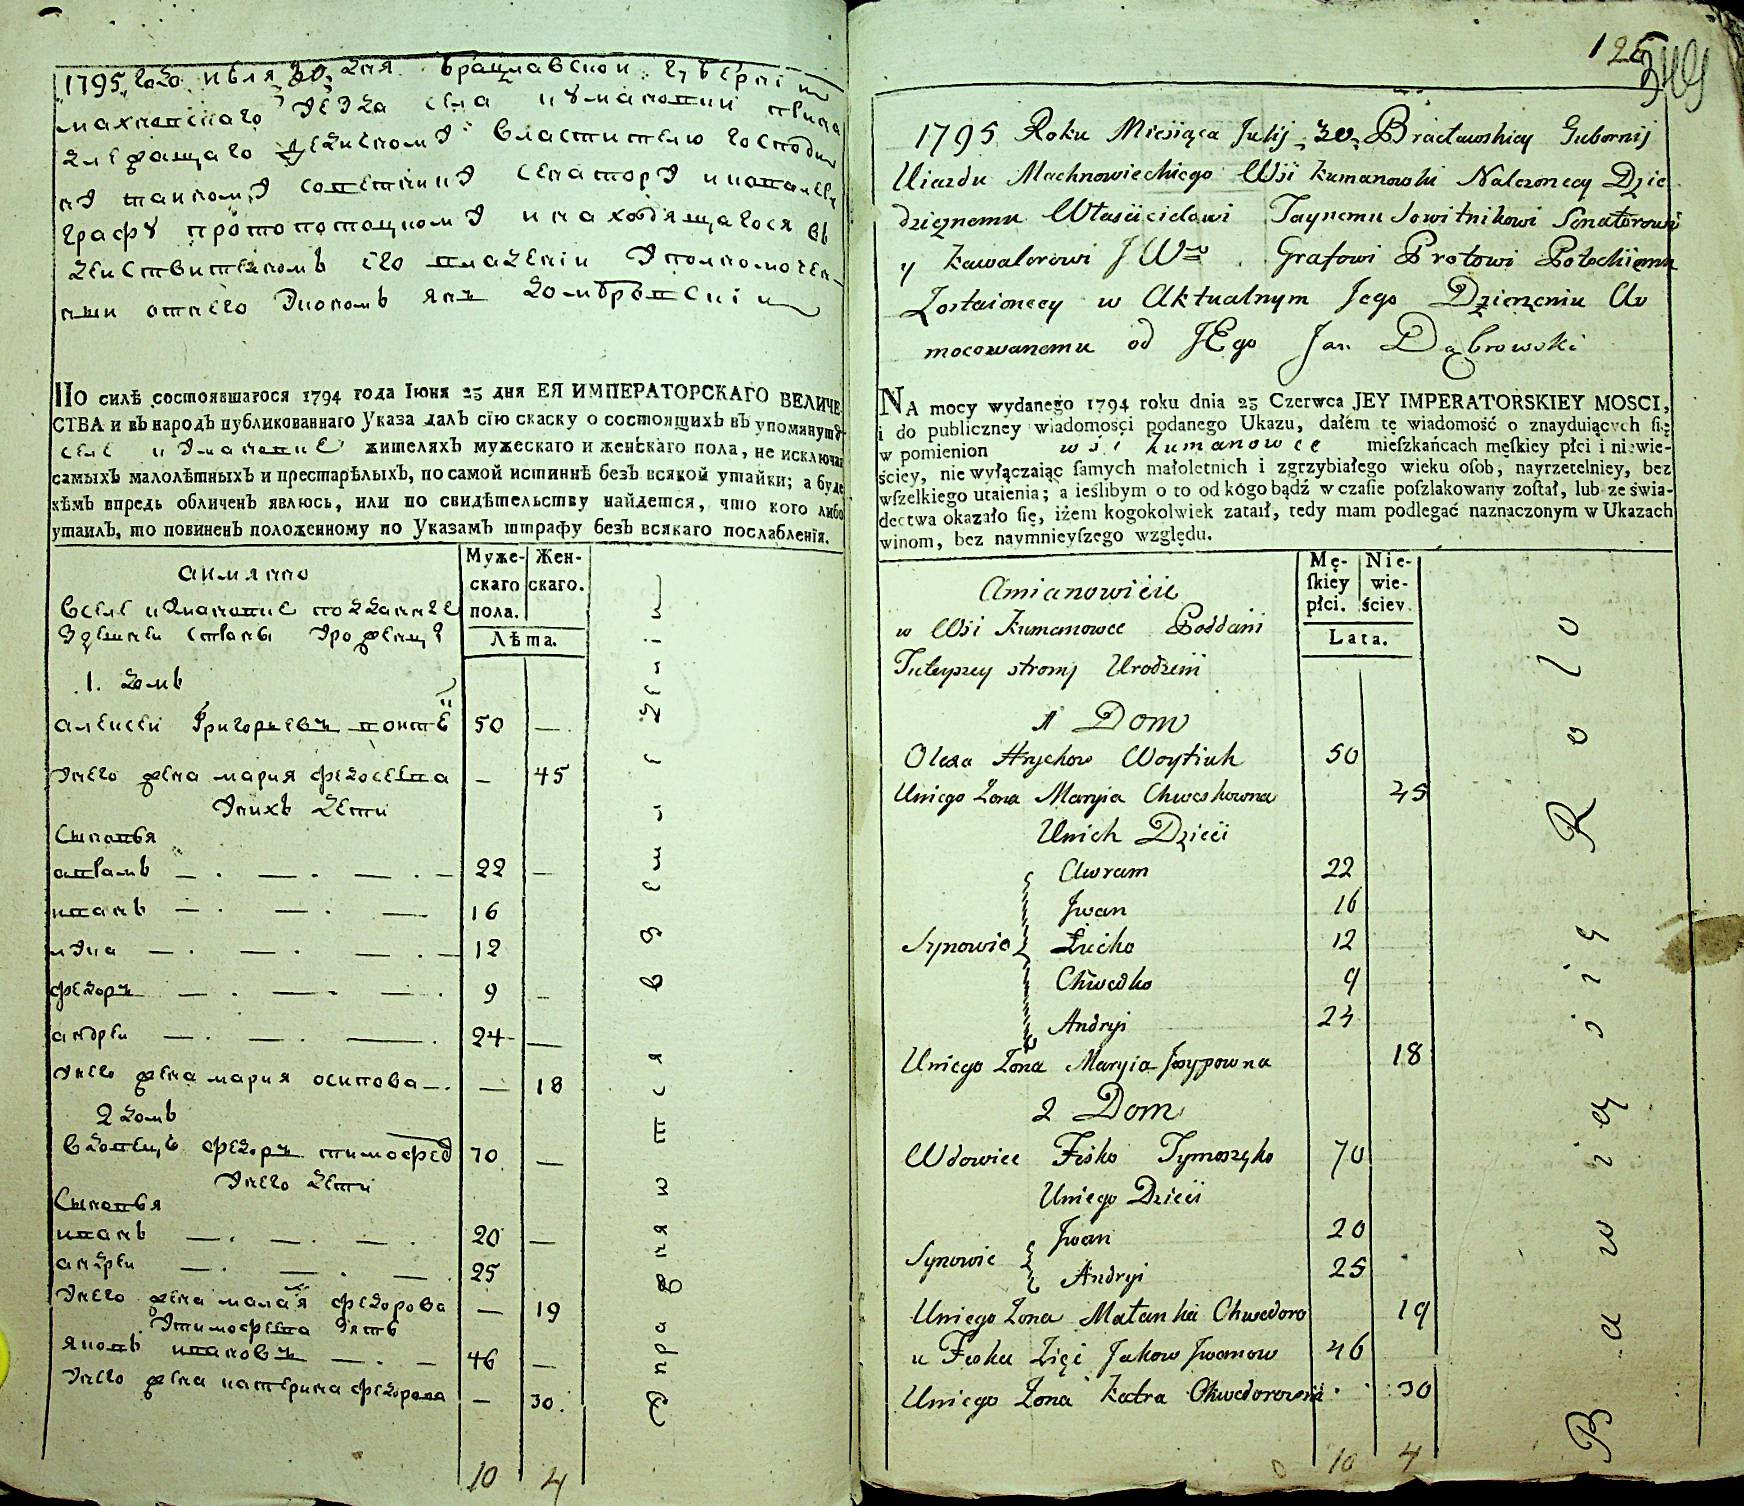 1795 года июля 30 дня Брацлавской губернии
махновскаго уезда села
властителю господи
ну тайному советнику сенатору и кавалеру
графу протопотоцкому и находящагося въ
действительномъ его владении уполномочен
ный отнего економъ янъ домбровский
ПО силѣ состоявшагося 1794 года Іюня 23 дня ЕЯ ИМПЕРАТОРСКАГО ВЕЛИЧЕ-
СТВА и въ народъ публикованнаго Указа далъ сїю скаску о состоящихъ въ упомянутѡ-
селе кумановке жителяхъ мужескаго и женскаго пола, не исключая
самыхъ малолѣтныхъ и престарѣлыхъ, по самой истиннѣ безъ всякой утайки; а буде
кѣмъ впредь обличенъ явлюсь, или по свидѣтельству найдется, что кого либо
утаилъ, то повиненъ положенному по Указамъ штрафу безъ всякаго послабленїя.
Муже-
скаго
пола.
Жен-
скаго.
Лѣта.
аимянно
вселе кумановке подданне
здешней стваны урожденц
1. домъ
алексей григорьевъ войтю 50 —
унего жена мария федосевна — 45
унихъ дети
Сыновья
аврамъ — . — . — . — 22 —
иванъ — . — . — 16
лука — . — . — . — 12
федоръ — . — . — . 9 —
андрей — . — . — . 24 —
унего жена мария осипова — . — 18
2 домъ
вдовецъ федоръ тимофеѣ 70 —
унего дети
Сыновья
иванъ — . — . — . 20 —
андрей — . — . — 25
унего жена малания федорова — 19
утимофевна зять
яковъ ивановъ — . — 46 —
унего жена катерина федорова — 30.
10 4
вдействия
управлення
125
349
1795 Roku Miesiąca Julij 30 Bracławskiey Gubernij
Uiazdu Machnowieckiego Wsi Kumanowki Nalezoncey Dzie
dzicznemu Właścicielowi Taynemu Sowitnikowi Senatorowi
y Kawalerowi JW Grafowi Protowi Potockiemu
Zostaioncey w Aktualnym Jego Dzierzeniu Uu
mocowanemu od JEgo Jan Dąbrowski
NA mocy wydanego 1794 roku dnia 23 Czerwca JEY IMPERATORSKIEY MOSCI,
i do publiczney wiadomości podanego Ukazu, dałem tę wiadomość o znayduiących się
w pomienion wsi Kumanowce mieſzkańcach męſkiey płci i niewie-
ściey, nie wyłączaiąc ſamych małoletnich i zgrzybiałego wieku oſob, nayrzetelniey, bez
wſzelkiego utaienia; a ieślibym o to od kogo bądź w czaſie poſzlakowany zoſtał, lub ze świa-
dectwa okazało ſię, iżem kogokolwiek zataił, tedy mam podlegać naznaczonym w Ukazach
winom, bez naymnieyſzego względu.
Mę-
ſkiey
płci.
Nie-
wie-
ściey.
Lata.
Amianowicie
w Wsi Kumanowce Poddani
Tuteyszey strony Urodzeni
1 Dom
Olexa Hrychow Woytiuk 50
Uniego Zona Maryia Chweskowna 45
Unich Dzieci
Awram 22
Jwan 16
Synowie Łucko 12
Chwedko 9
Andryi 24
Uniego Zona Maryia Jozypowna 18
2 Dom
Wdowiec Fesko Tymoszyko 70
Uniego Dzieci
Jwan 20
Synowie
Andryi 25
Uniego Zona Małanka Chwedoro 19
u Feska Zięć Jakow Jwanow 46
Uniego Zona Katra Chwedorowna 30
10 4
Bawiących się Rolo